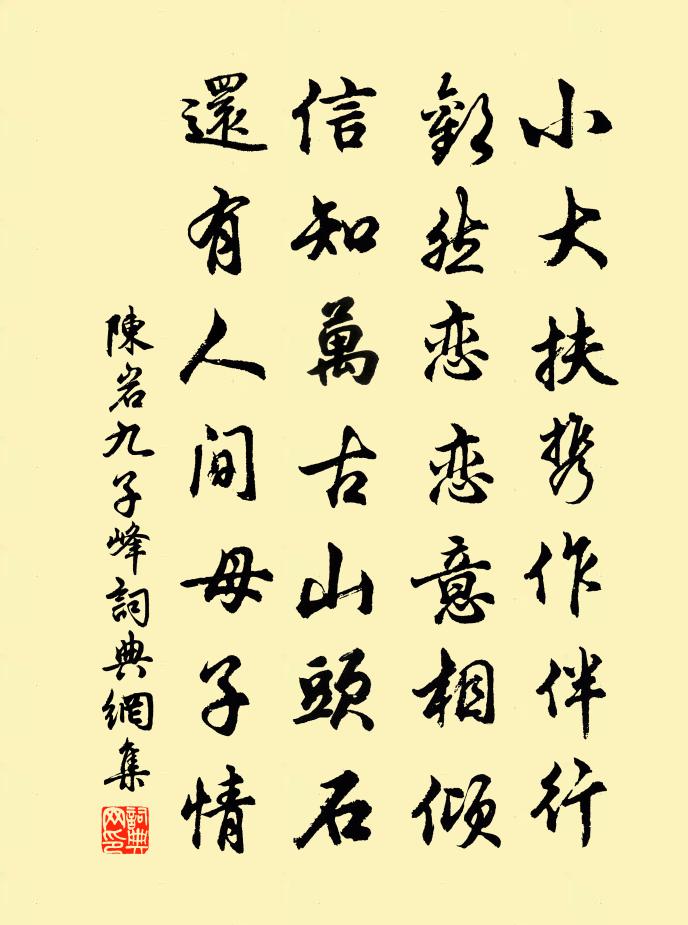 小大扶携作伴行
歡然恋恋意相傾
信知萬古山頭石
還有人間母子情
陳岩九子峰詞典網集
詞典网印